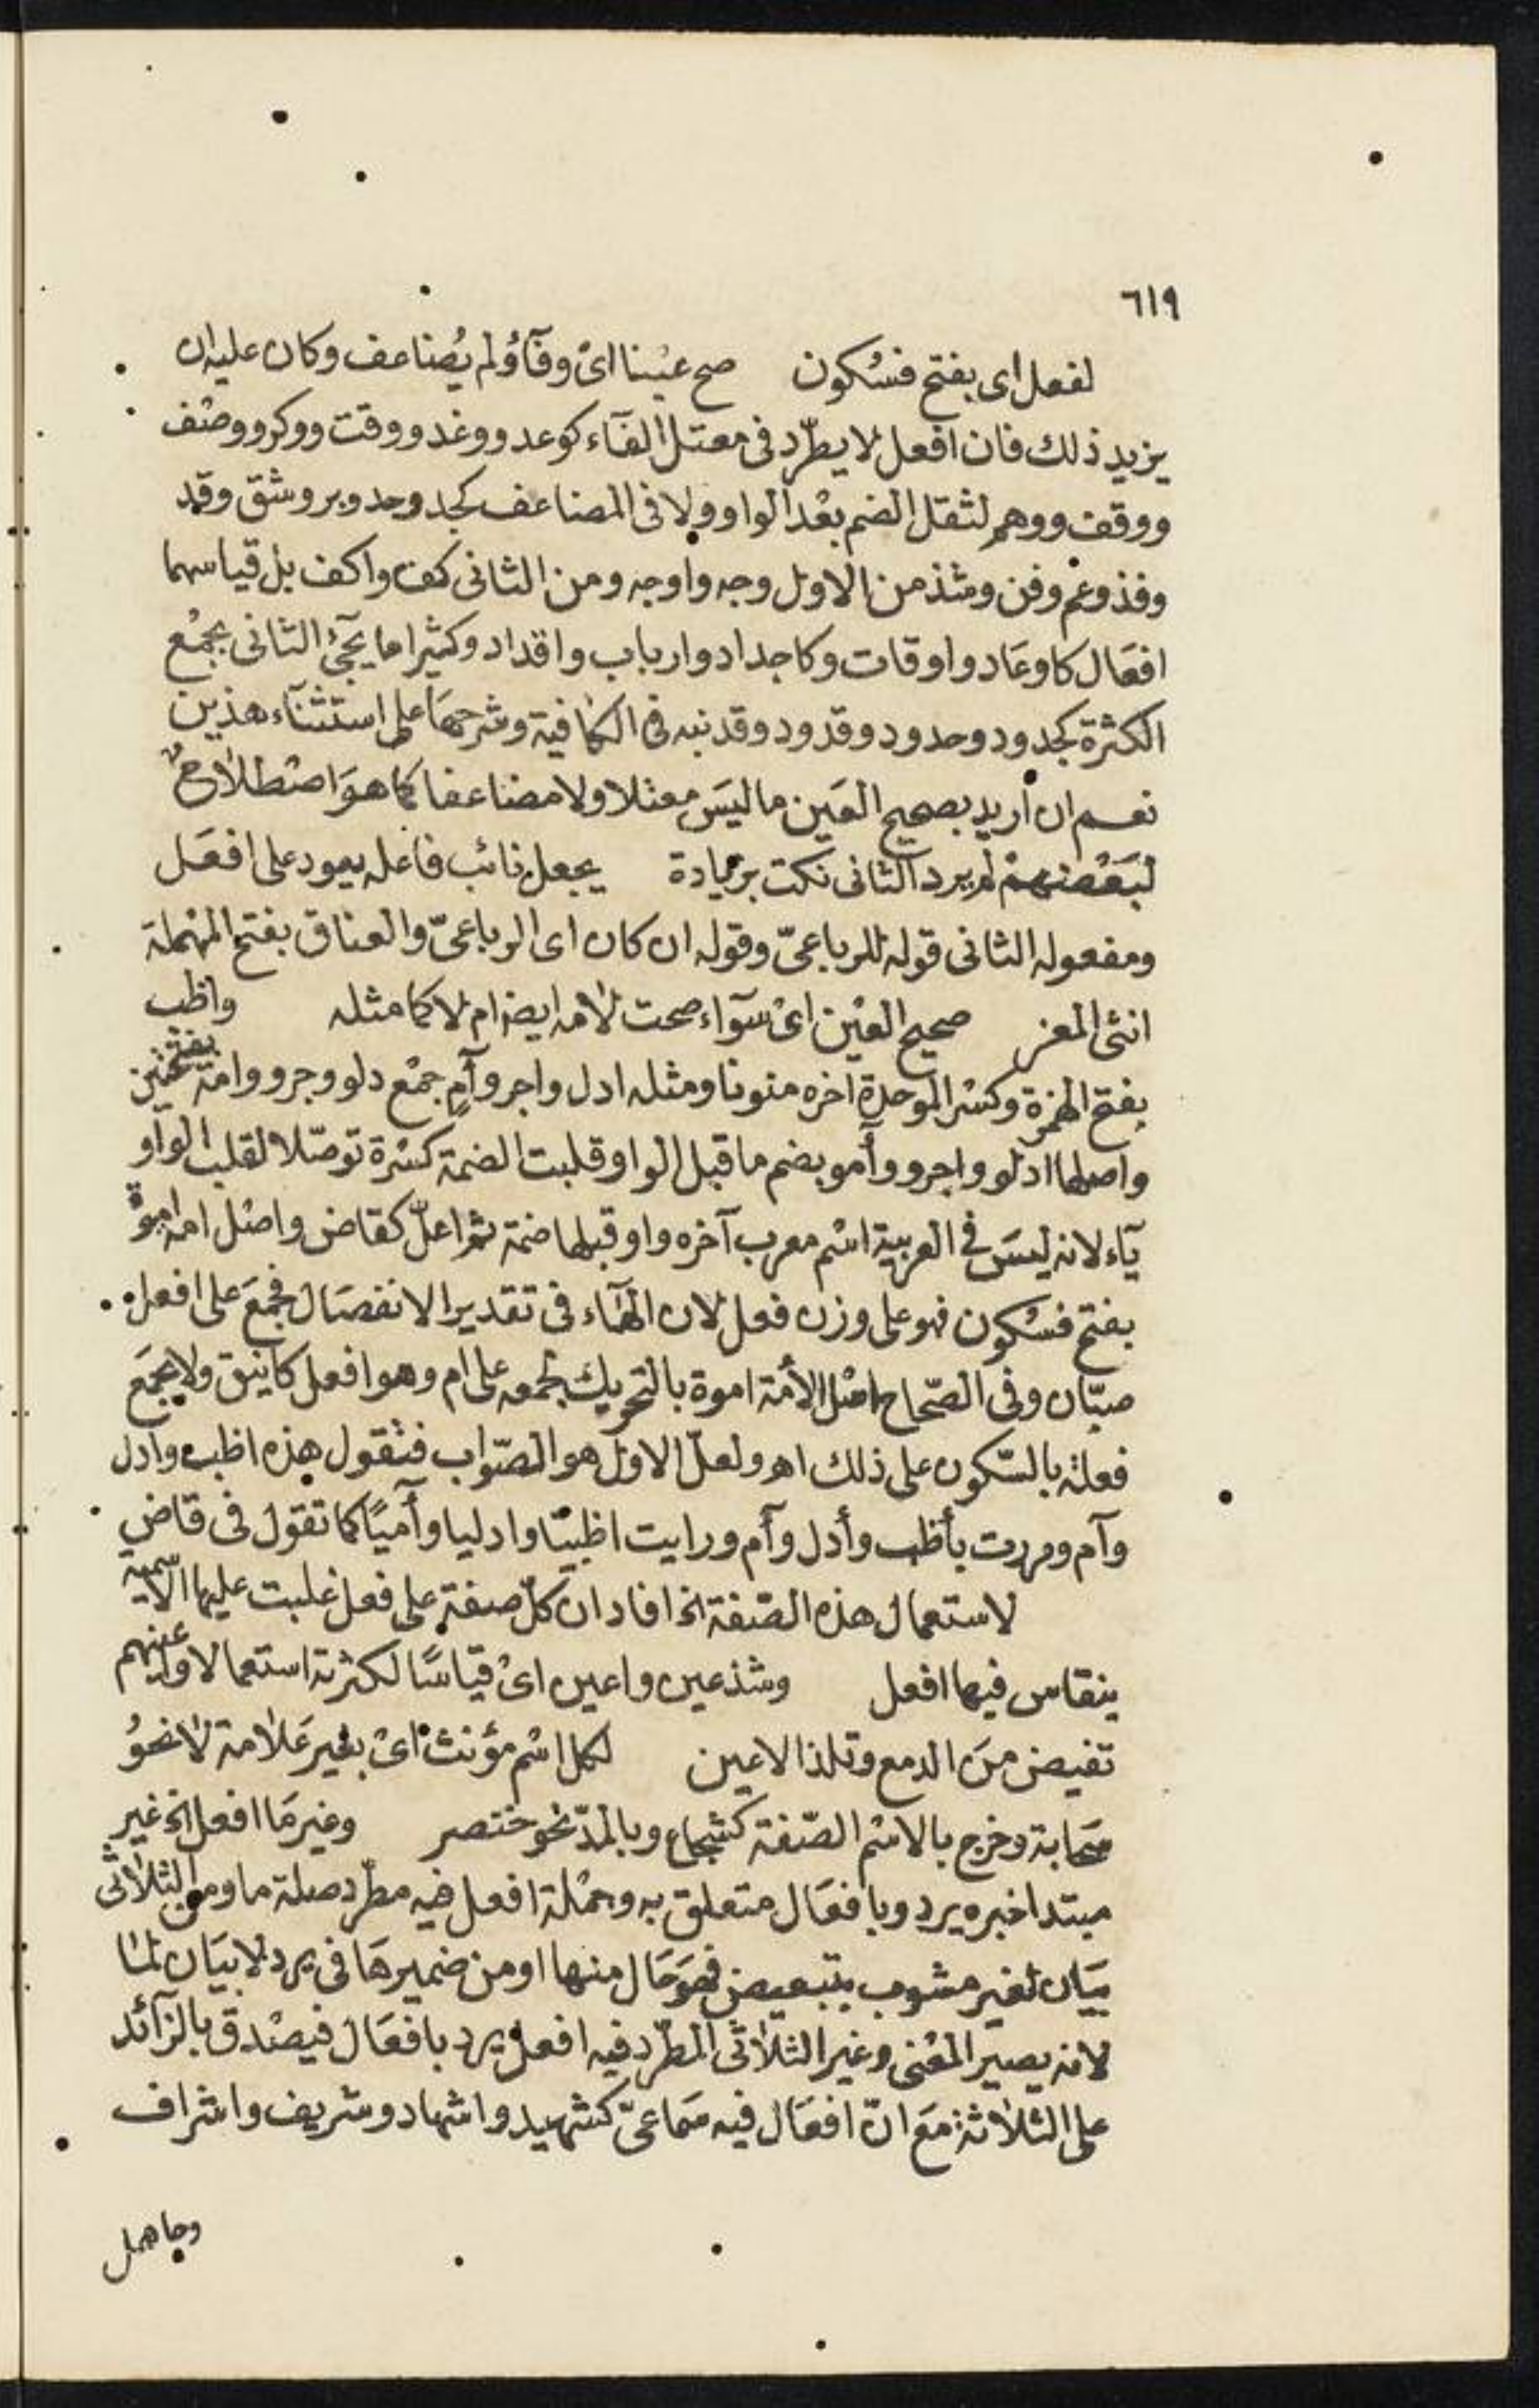 ٦١٩
لفعل اى بفتح فسُكون صح عيْنا اىْ وفآؤُ لم يُضاعف وكان عليه ان
يزيد ذلك فان افعل لا يطّرد فى معتل الفآء كوعد ووغد ووقت ووكر ووصْف
ووقف ووهم لثقل الضم بعْد الواو ولا فى المضاعف كجد وحد وبر وشق وقد
وفذ وعم وفن وشذ من الاول وجه واوجه ومن الثانى كف واكف بل قياسهما
افعَال كاوعَاد واوقات وكاجداد وارباب واقداد وكثيرا ما يجئ الثانى بجمْع
الكثرة كجدود وحدود وقدود وقد نبه فى الكافية وشرحهَا على استثنآء هذين
نعم ان اريد بصحيح العَين ما ليسَ معتلا ولا مضاعفا كما هوَ اصْطلاح
لبَعْضهمْ لم يرد الثانى نكت بزيادة يجعل نائب فاعله يعود على افعَل
ومفعوله الثانى قوله للرباعىّ وقوله ان كان اى الرباعىّ والعناق بفتح المهْملة
انثى المعز صحيح العيْن اىْ سوآء صحت لامه ايضا ام لا كما مثله واظب
بفتح الهمزة وكسْر الموحدة آخره منونا ومثله ادل واجر وآمٍ جمْع دلو وجرو وامة بفتحتين
واصلها ادلو واجرو وأمو بضم ما قبل الواو قلبت الضمة كسْرة توصّلا لقلب الواو
يآء لانه ليسَ فى العربية اسْم معرب آخره واو قبلها ضمة ثم اعلّ كقاض واصْل امة اموة
بفتح فسُكون فهو على وزن فعل لان الهآء فى تقدير الانفصَال فجمعَ على افعل
صبّان وفى الصّحاح اصْل الأمة اموة بالتحريك لجمعه على ام وهو افعل كاينق ولا يجمَع
فعلة بالسّكون على ذلك اهـ ولعلّ الاول هو الصّواب فتقول هذه اظب وادل
وآم ومررت بأظب وأدل وأم ورايت اظبيًا وادليا وأميًا كما تقول فى قاض
لاستعمال هذه الصّفة الخ افاد ان كلّ صفة على فعل غلبت عليها الاسمية
ينقاس فيها افعل وشذ عين واعين اىْ قياسًا لكثرته استعمالا واعينهم
تفيض منَ الدمع وتلذ الاعين لكل اسْم مؤنث اىْ بغير عَلامة لا نحوُ
سَحابة وخرج بالاسْم الصّفة كشجاع وبالمدّ نحو خنصر وغير مَا افعل الخ غير
مبتدا خبره يرد وبافعَال متعلق به وجمْلة افعل فيه مطّرد صلة ما ومن الثلاثى
بيَان لغير مشوب بتبعيض فهوَ حَال منها او من ضميرهَا فى يرد لا بيَان لما
لانه يصير المعْنى وغير الثلاثى المطّرد فيه افعل يرد بافعَال فيصْدق بالزآئد
على الثلاثة مَع انّ افعَال فيه سَماعىّ كشهيد واشهاد وشريف واشراف
وجاهل